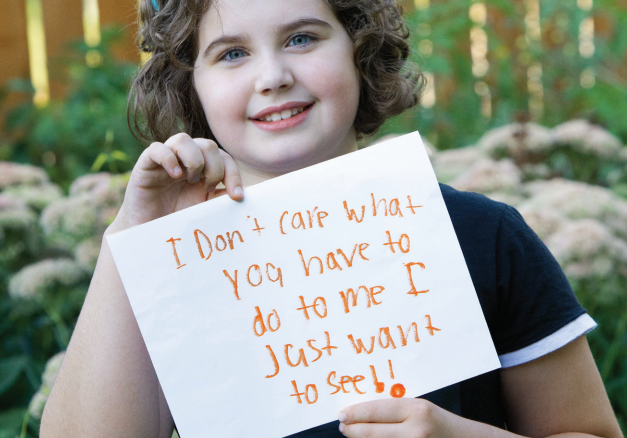 I Don't care what
you have to
do to me I
Just want
to see!!